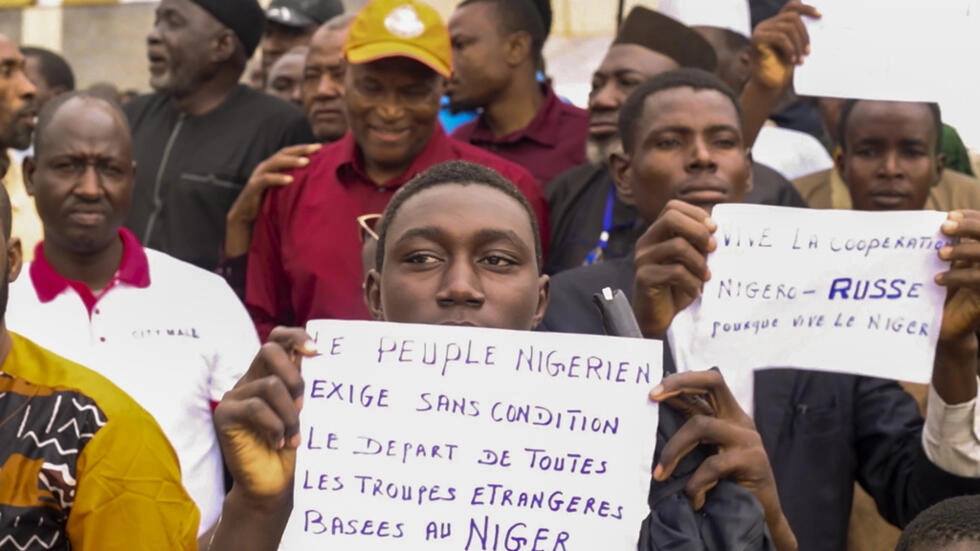 CITY MALL
VIVE LA COOPERATION
NIGERO-RUSSE
POURQUE VIVE LE NIGER
LE PEUPLE NIGERIEN
EXIGE SANS CONDITION
LE DEPART DE TOUTES
LES TROUPES ETRANGERES
BASEES AU NIGER